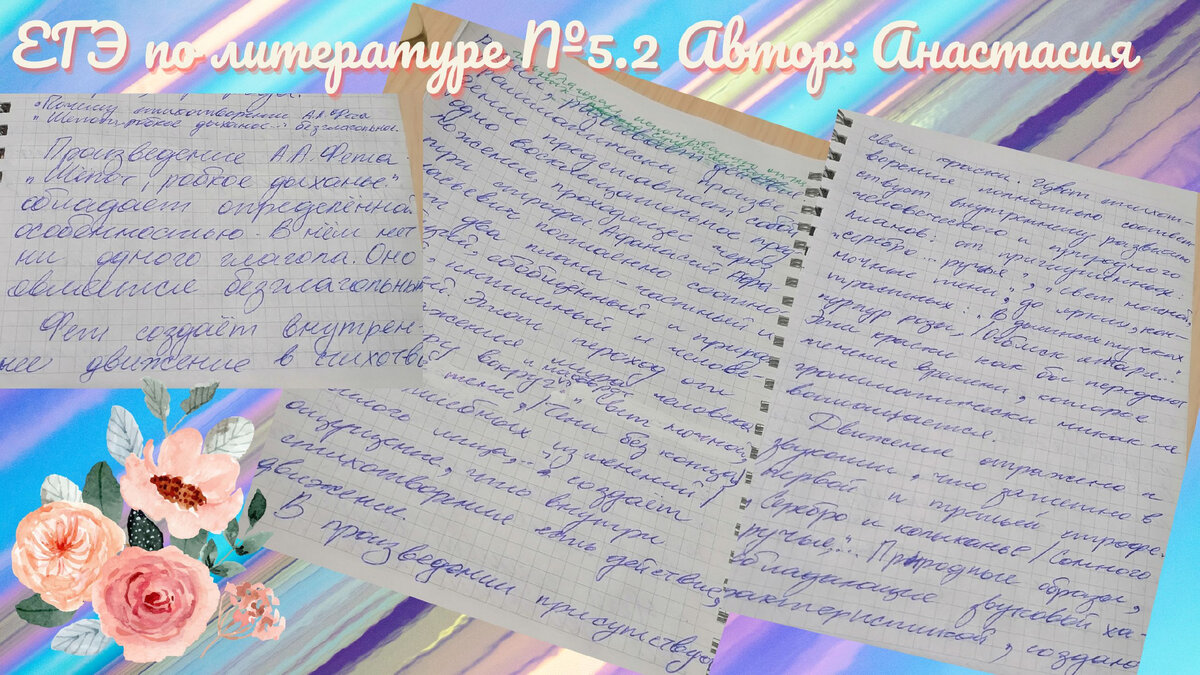 ЕГЭ по литературе №5.2 Автор: Анастасия
"Почему стихотворение А.А. Фета
"Шепот, робкое дыханье..." безглагольное.
Произведение А.А. Фета -
"Шёпот, робкое дыханье."
обладает определённой
особенностью. В нём нет
ни одного глагола. Оно
является безглагольным
Фет создаёт внутрен-
нее движение в стихотв
произве-
дение представляет собой
одно восклицательное пред-
ложение, проходящее через
три строфы. Афанасий Афа
насьевич постоянно соотно-
два плана - частный и
обобщенный и природ
интимный и челове-
Этот переход от
человека
вокруг: "Свет ночной,
тени, / Тени без конца /
волшебных изменений /
милого лица,..." создаёт
ощущение, что внутри
стихотворения есть действие,
движение.
В произведении присутствую
свои краски. Цвет стихот-
ворения полностью соответ-
ствует внутреннему развитию
человеческого и природного
планов: от приглушенных:
"серебро... ручья", "свет ночной,
ночные тени", до ярких, кон-
трастных: "В дымных тучках
пурпур розы, / Отблеск янтаря..."
Эти краски как бы передают
течение времени, которое
грамматически никак не
воплощается.
Движение отражено и
звуками, что заметно в
первой и третьей строфе.
Серебро и колыханье / Сонного
ручья,"... Природные образы,
обладающие звуковой ха-
рактеристикой, создаю